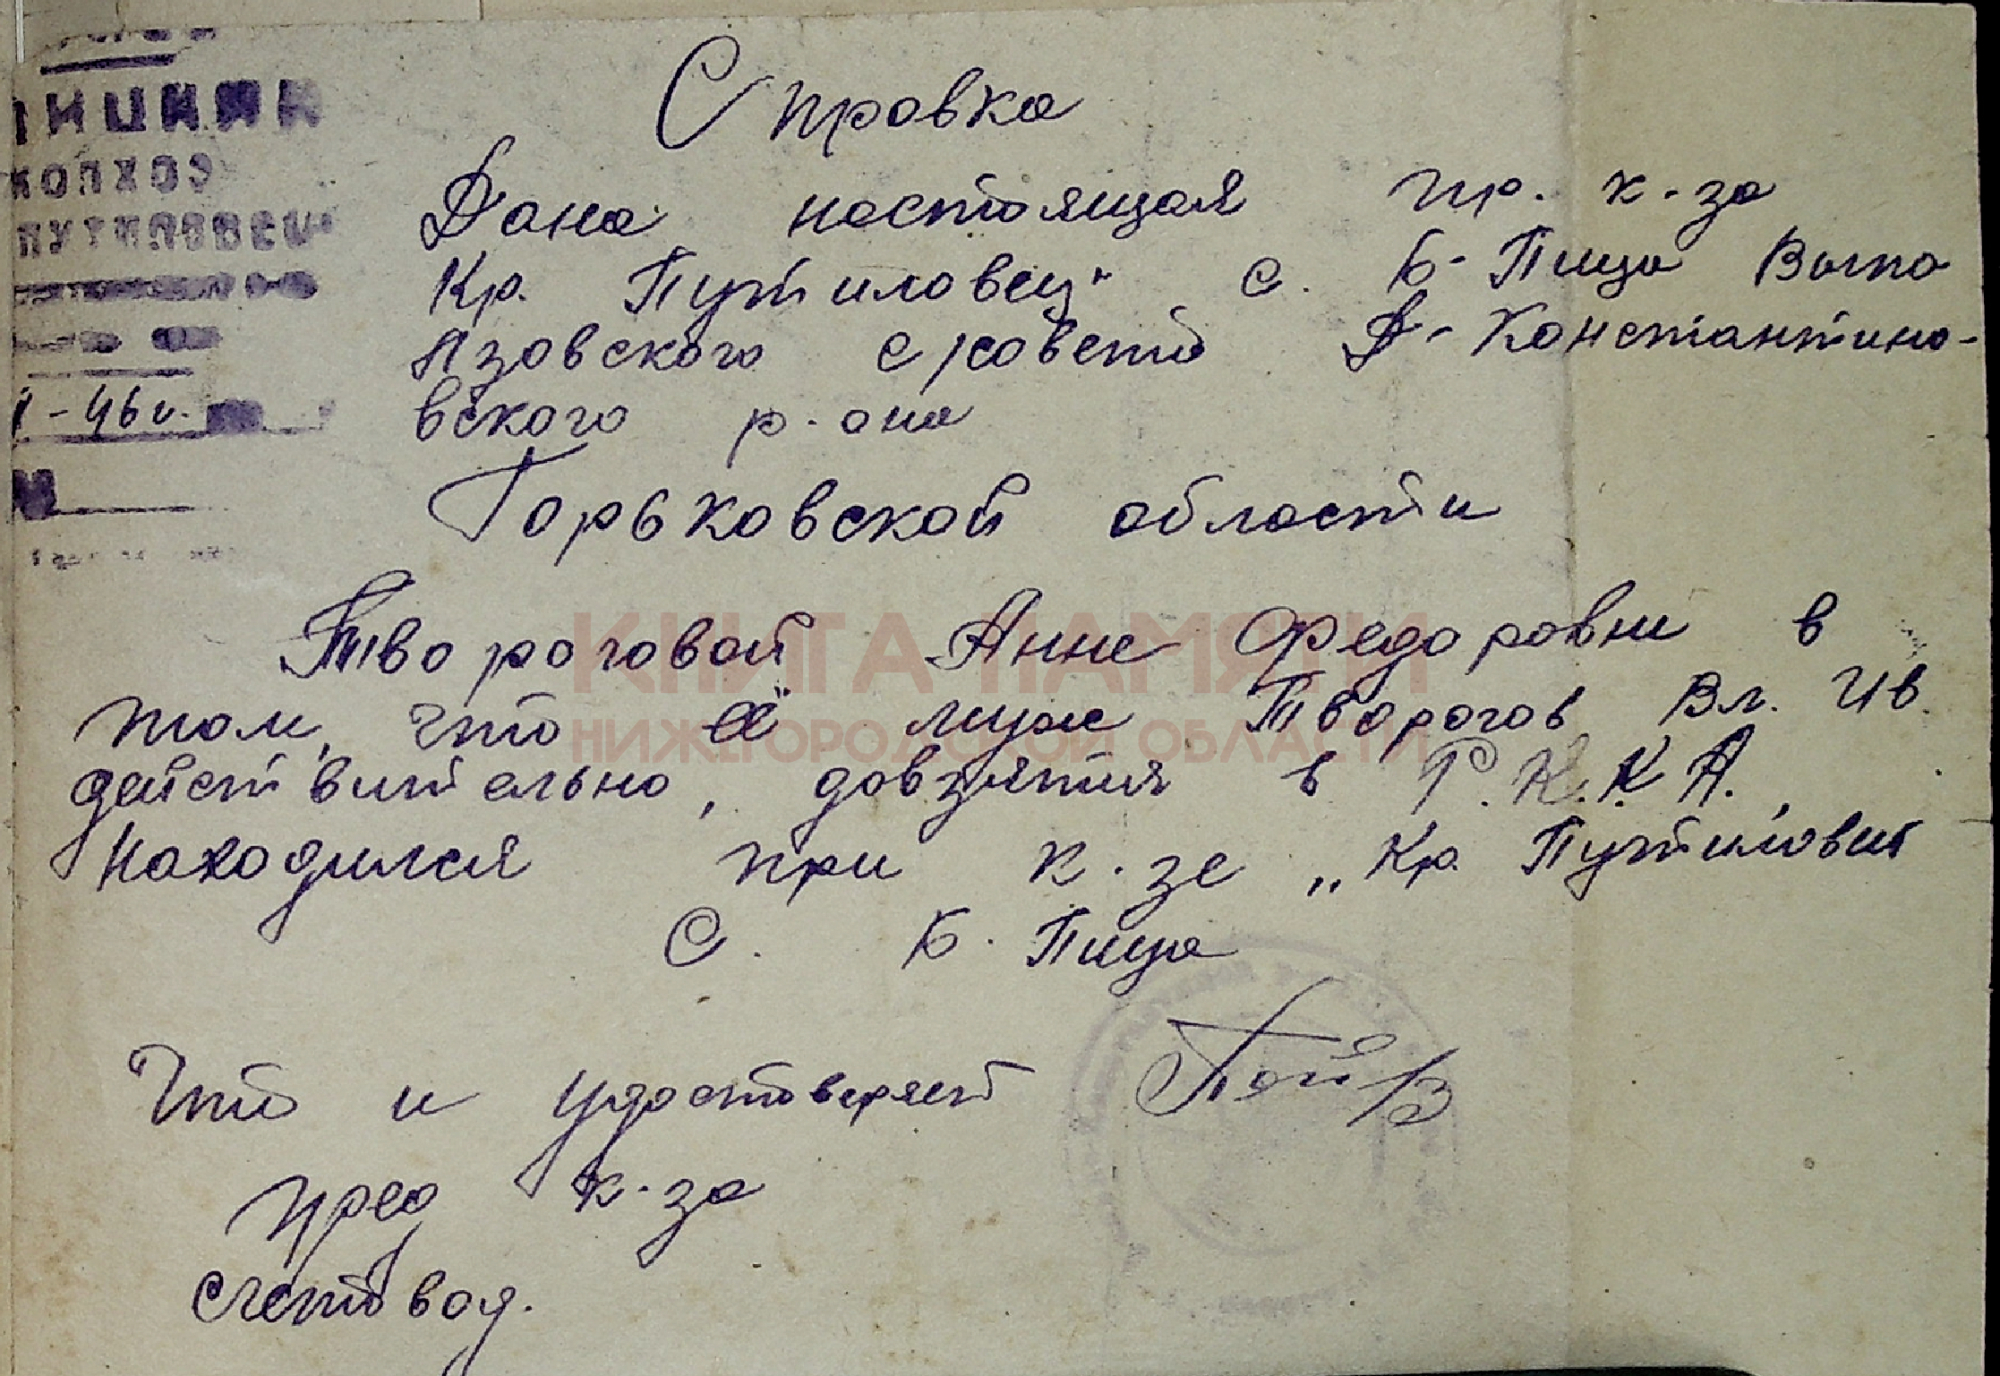 КОЛХОЗ
ПУТИЛОВЕЦ
-46 г.
Справка
Дана настоящая пр. к-за
Кр. Путиловец" с. Б-Пица
Азовского с/совета Д-Константино-
вского р-она
Горьковской области
Твороговой Анне Федоровни в
том, что её муж Творогов Вл. Ив.
действительно, довзятия в Р.К.К.А.,
находился при к-зе „Кр. Путиловец
С. Б. Пица
Что и удостоверяет
пред к-за
счетовод.
КНИГА ПАМЯТИ
НИЖЕГОРОДСКОЙ ОБЛАСТИ